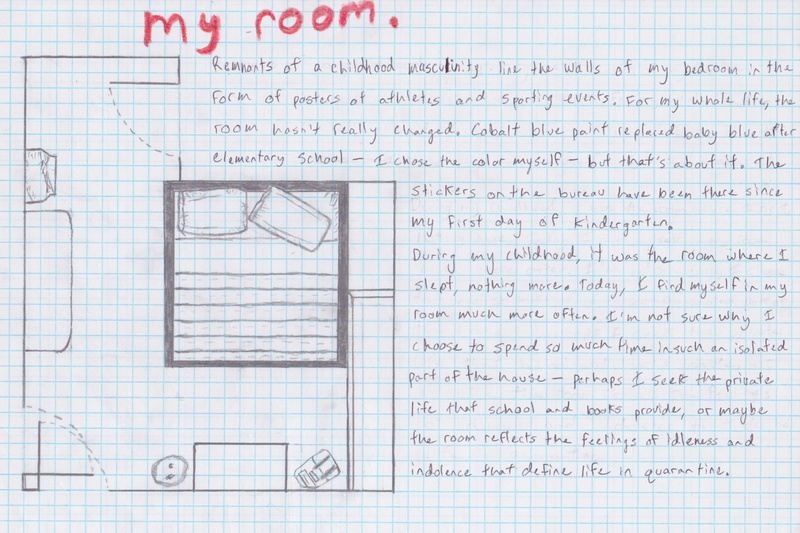 my room.
Remnants of a childhood masculinity line the walls of my bedroom in the
form of posters of athletes and sporting events. For my whole life, the
room hasn't really changed. Cobalt blue paint replaced baby blue after
elementary school – I chose the color myself – but that's about it. The
stickers on the bureau have been there since
my first day of Kindergarten.
During my childhood, it was the room where I
slept, nothing more. Today, I find myself in my
room much more often. I'm not sure why I
choose to spend so much time in such an isolated
part of the house – perhaps I seek the private
life that school and books provide, or maybe
the room reflects the feelings of idleness and
indolence that define life in quarantine.